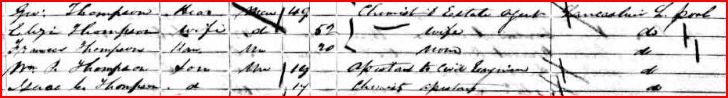 Geo. Thompson Head Mar 49 Chemist & Estate Agent Lancashire L. pool
Eliza Thompson wife do 52 wife do
Frances Thompson Dau Un 20 none do
Wm. R. Thompson Son Un 19 Apprentice to Civil Engineer do
Isaac C. Thompson do 17 Chemist apprentice do